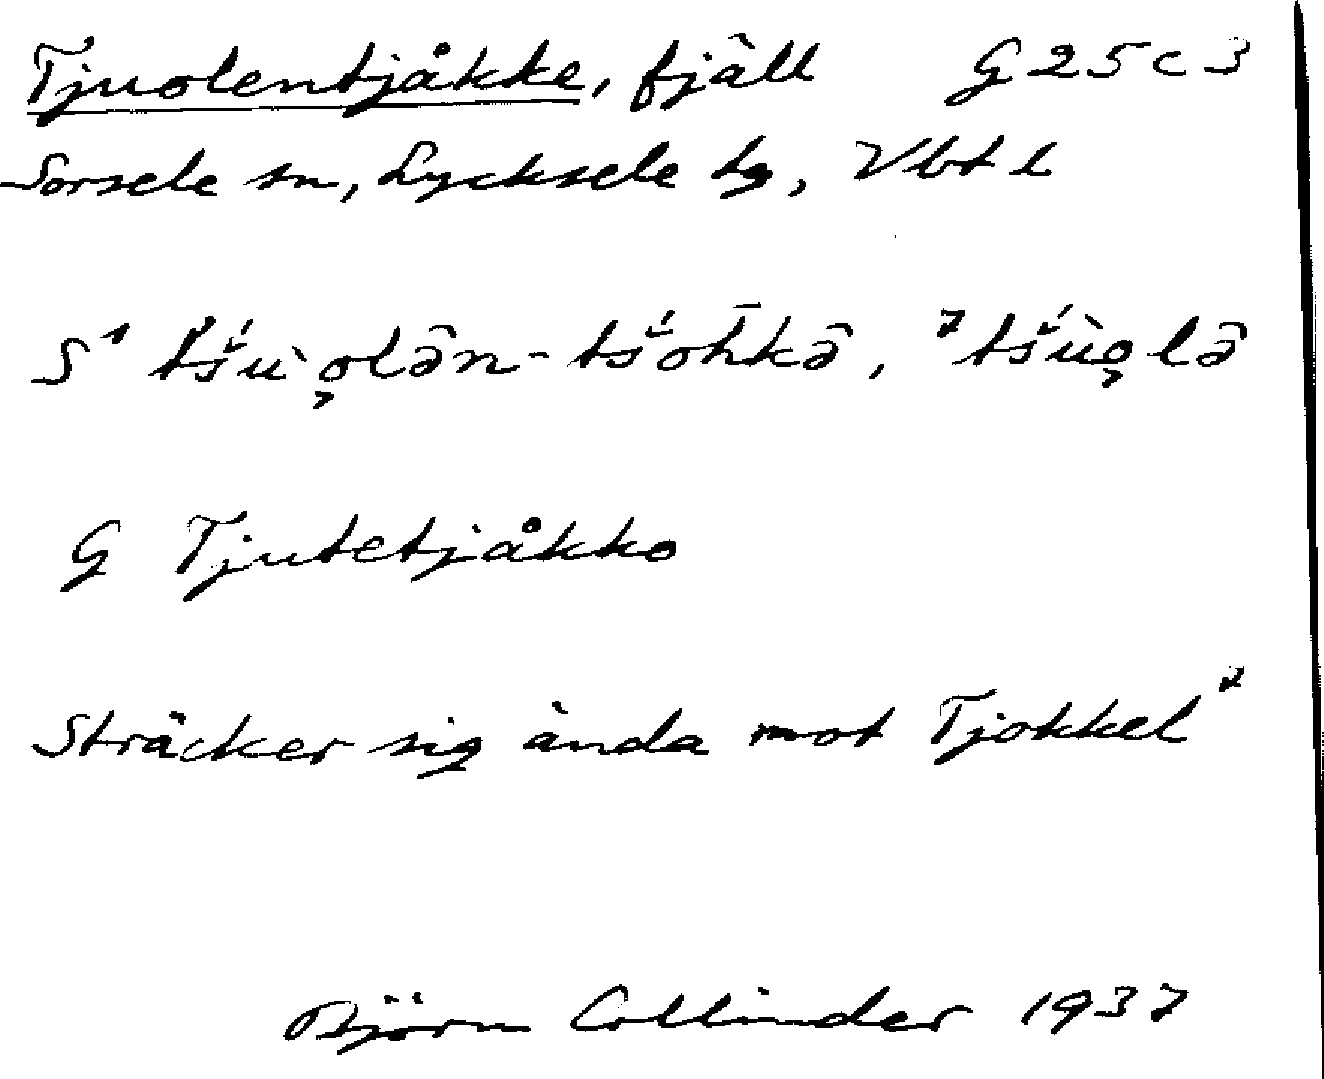 Tjuolentjåkke, fjäll G 25 c 3
Sorsele sn, Lycksele tg, Vbt l
S¹ tš́ù̯o̭lân-tš́oh̄kâ, ²tš́ùo̭lâ
G Tjutetjåkko
Sträcker sig ända mot Tjokkel²
Björn Collinder 1937